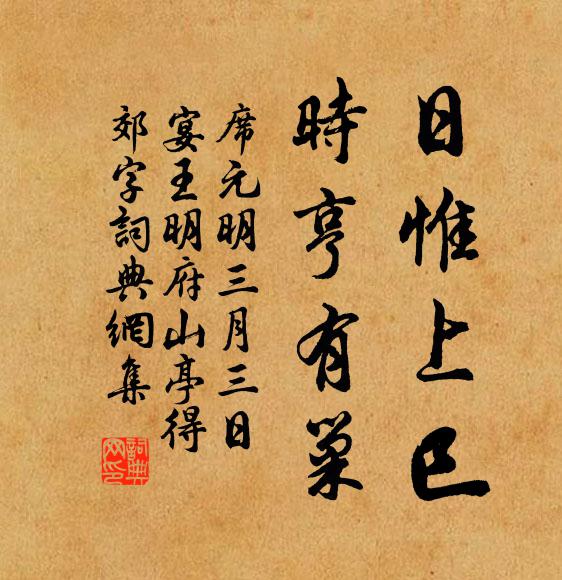 日惟上巳
時亨有巢
席元明三月三日
宴王明府山亭得
郊字詞典網集
詞典
网印